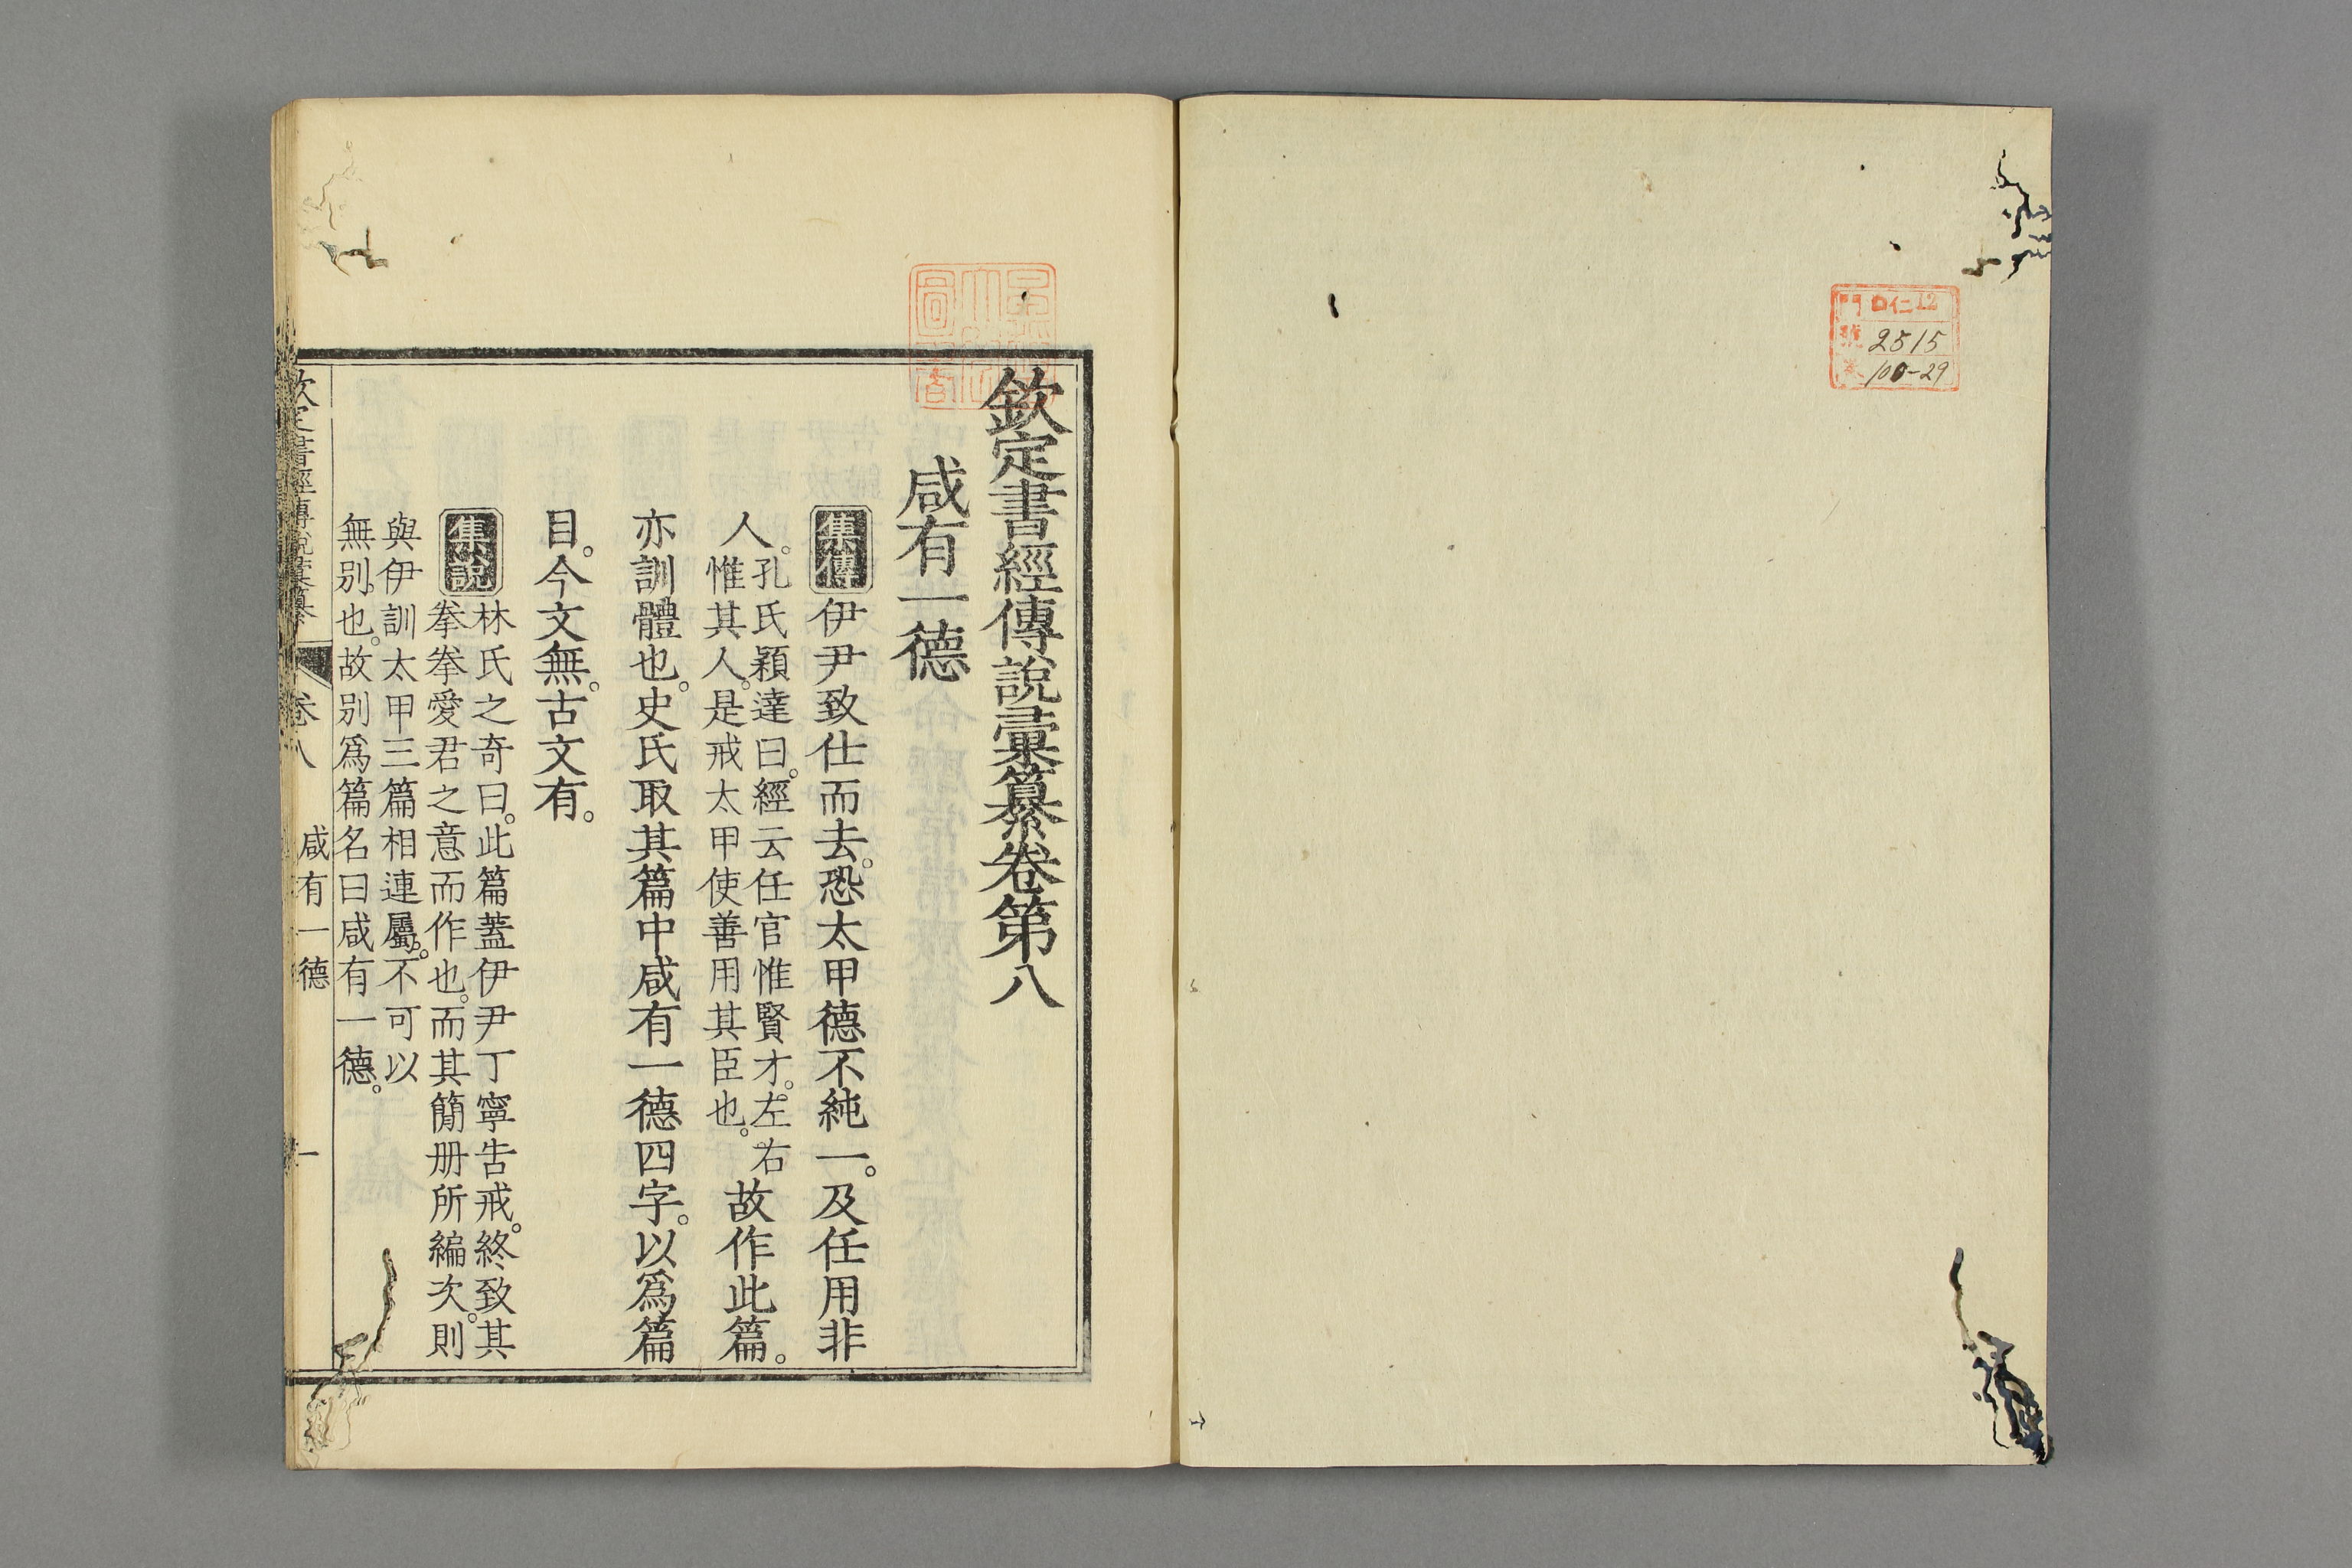 門 口仁12
號 2515
卷 100-29
欽定書經傳說彙纂卷第八
咸有一德
集傳 伊尹致仕而去。恐太甲德不純一。及任用非
人。孔氏穎達曰。經云任官惟賢才。左右
惟其人。是戒太甲使善用其臣也。故作此篇。
亦訓體也。史氏取其篇中咸有一德四字。以爲篇
目。今文無。古文有。
集說 林氏之奇曰。此篇蓋伊尹丁寧告戒。終致其
拳拳愛君之意而作也。而其簡册所編次。則
與伊訓太甲三篇相連屬。不可以
無別也。故別爲篇名曰咸有一德。
欽定書經傳說彙纂 卷八 咸有一德 一